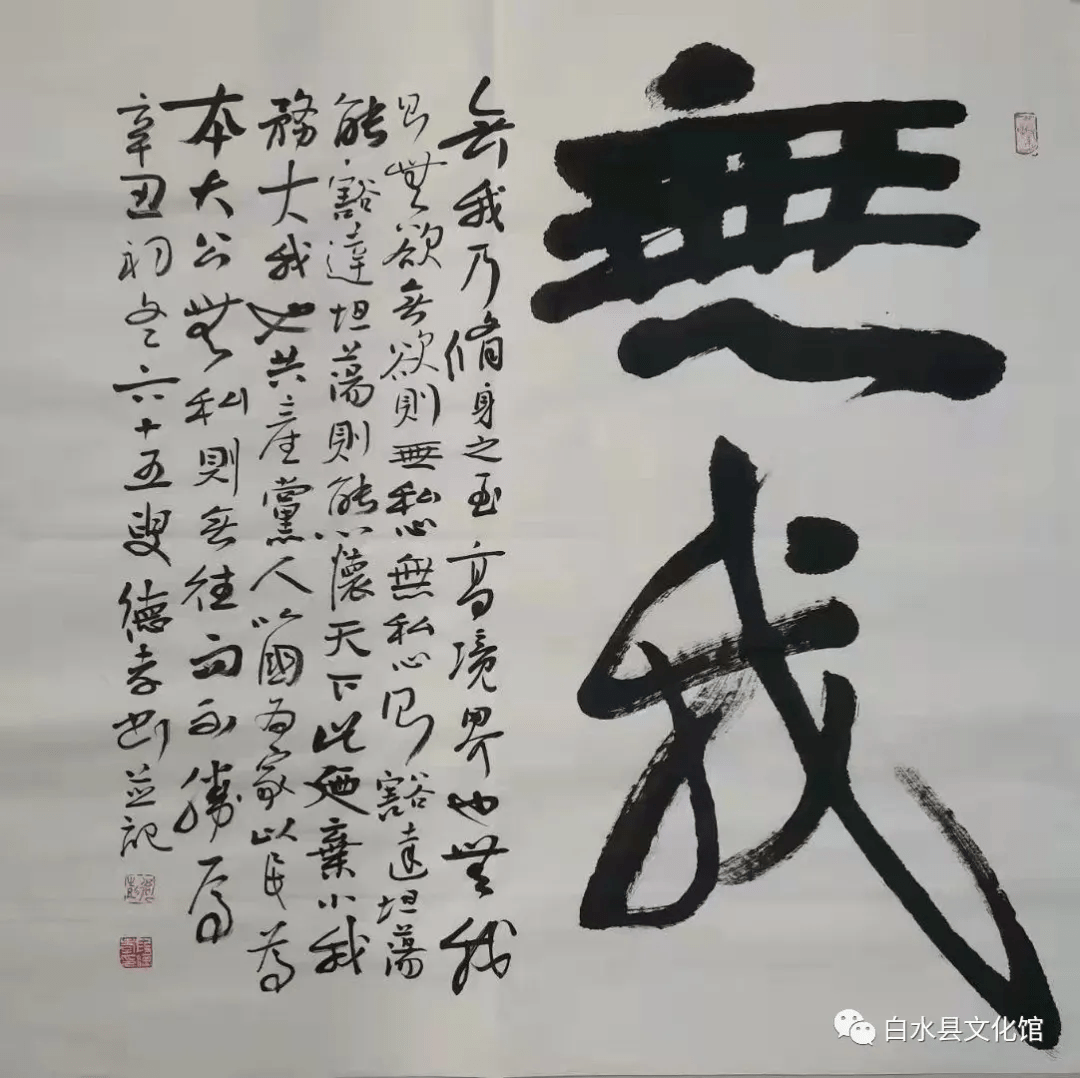 無我
無我乃脩身之至高境界也無我
則無欲無欲則無私心無私心則豁達坦蕩
能豁達坦蕩則能心懷天下此廼棄小我
務大我也共產黨人以國為家以民為
本大公無私則無往而不勝焉
辛丑初冬六十五叟德孝書并記
白水县文化馆